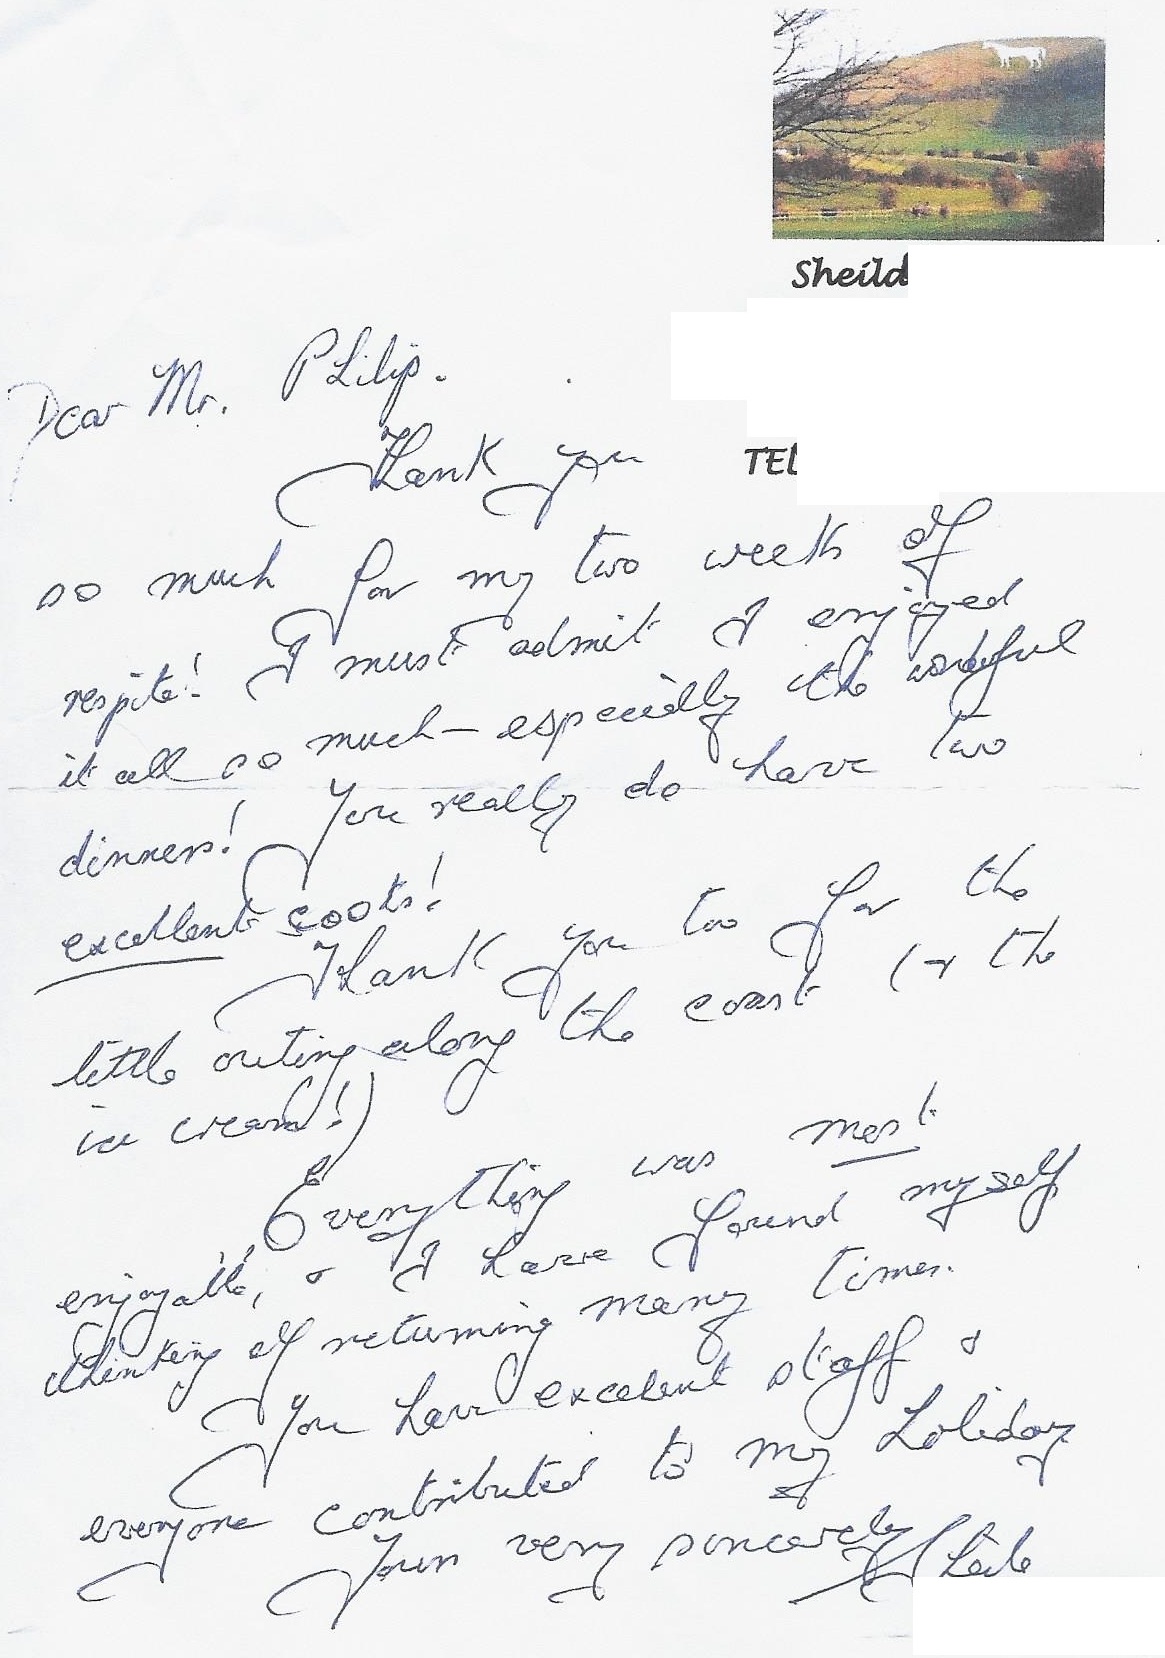 Sheild
Dear Mr. Philip.
Thank you
TEL
so much for my two weeks of
respite! I must admit I enjoyed
it all so much - especially the wonderful
dinners! You really do have two
excellent cooks!
Thank you too for the
little outing along the coast (& the
ice cream!)
Everything was most
enjoyable, & I have found myself
thinking of returning many times.
You have excellent staff &
everyone contributed to my holiday
Yours very sincerely Sheila